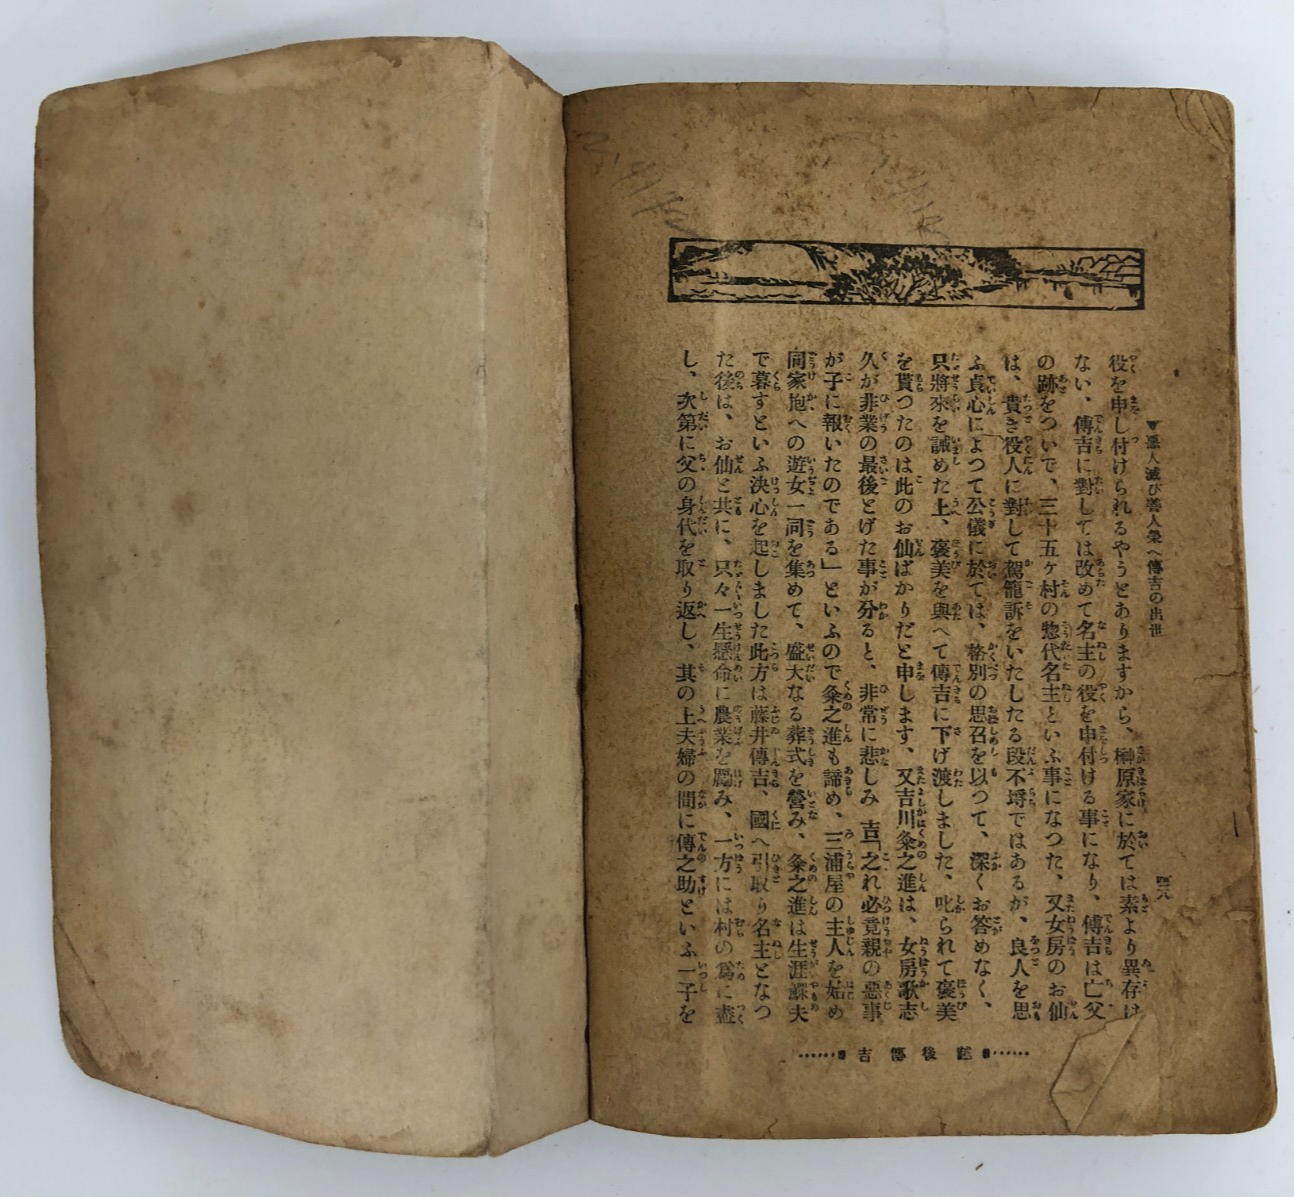 ▼惡人滅び善人榮へ傳吉の出世
四八
役を申し付けられるやうとありますから、榊原家に於ては素より異存は
ない、傳吉に對しては改めて名主の役を申付ける事になり、傳吉は亡父
の跡をついで、三十五ヶ村の惣代名主といふ事になつた、又女房のお仙
は、貴き役人に對して駕籠訴をいたしたる段不埒ではあるが、良人を思
ふ貞心によつて公儀に於ては、格別の思召を以つて、深くお咎めなく、
只將來を誡めた上、褒美を與へて傳吉に下げ渡しました、叱られて褒美
を貰つたのは此のお仙ばかりだと申します、又吉川粂之進は、女房歌志
久が非業の最後とげた事が分ると、非常に悲しみ 吉「之れ必竟親の惡事
が子に報いたのである」といふので粂之進も諦め、三浦屋の主人を始め
同家抱への遊女一同を集めて、盛大なる葬式を營み、粂之進は生涯鰥夫
で暮すといふ決心を起しました此方は藤井傳吉、國へ引取り名主となつ
た後は、お仙と共に、只々一生懸命に農業を勵み、一方には村の爲に盡
し、次第に父の身代を取り返し、其の上夫婦の間に傳之助といふ一子を
吉傳後